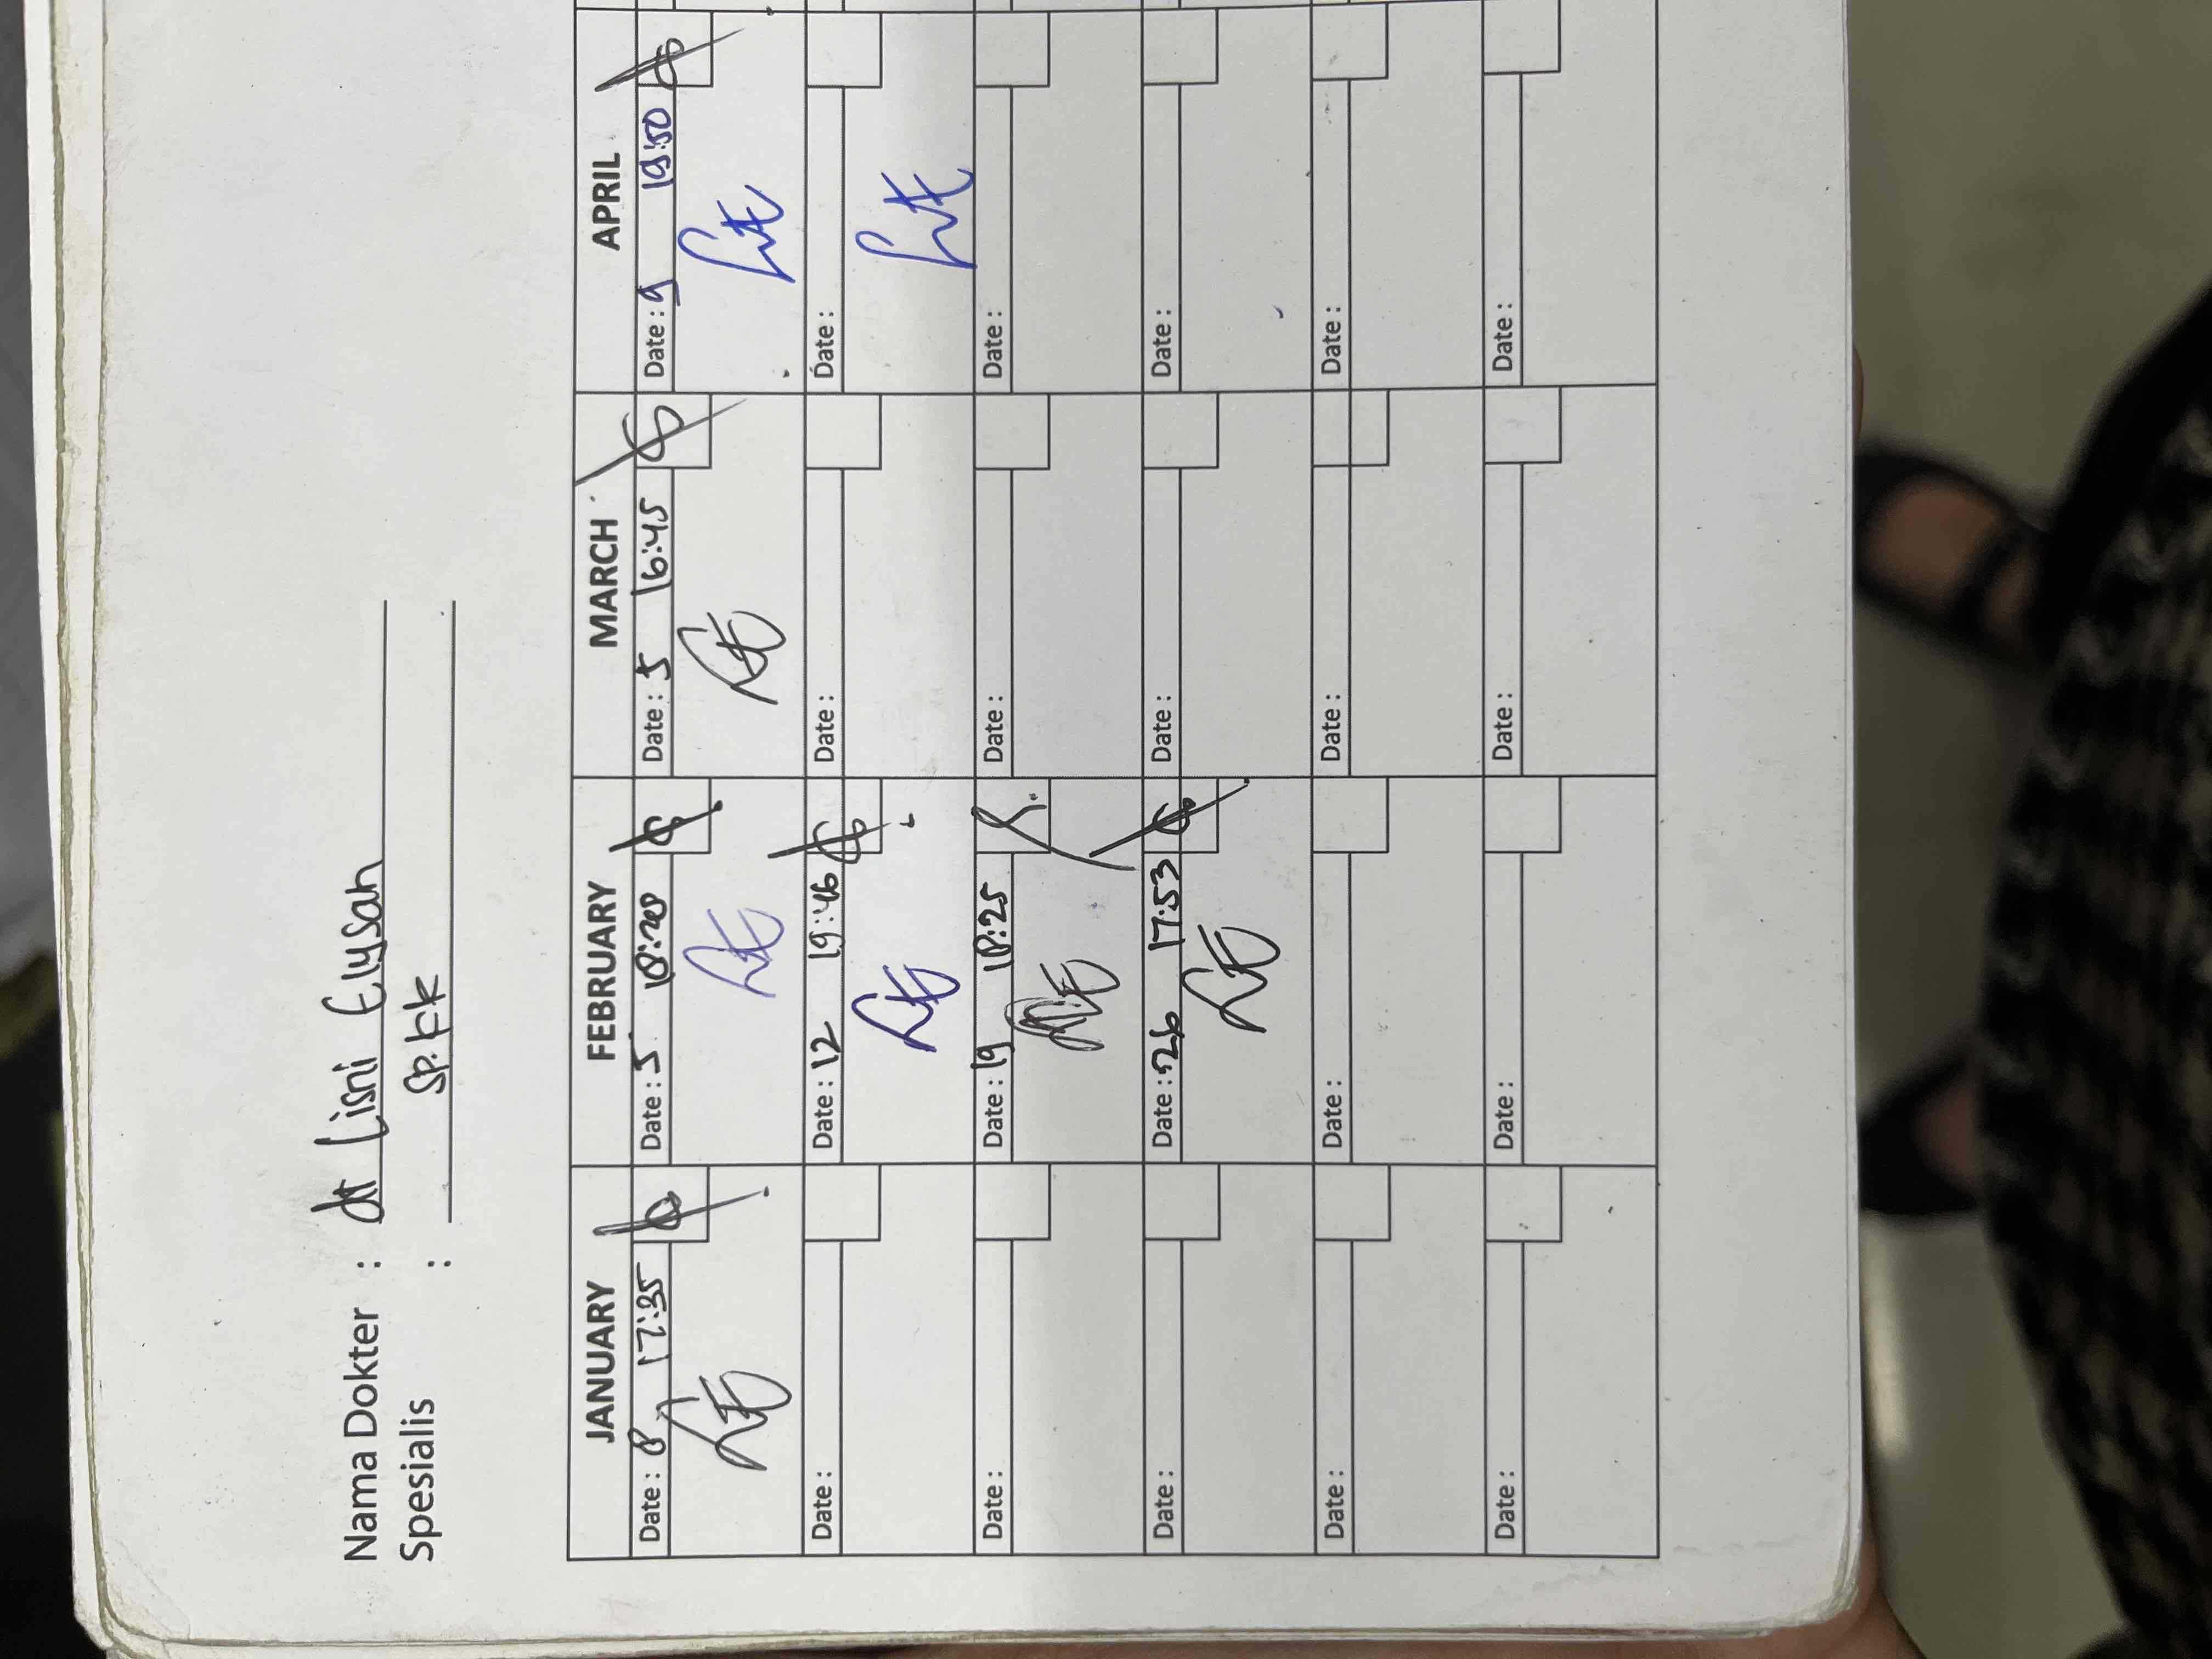 Nama Dokter : dr Lisni Elysah
Spesialis : Sp.KK
JANUARY FEBRUARY MARCH APRIL
Date : 8 17:35 Date : 5 18:20 Date : 5 16:45 Date : 9 19:50
Date : Date : 12 19:46 Date : Date :
Date : Date : 19 18:25 Date : Date :
Date : Date : 26 17:53 Date : Date :
Date : Date : Date : Date :
Date : Date : Date : Date :